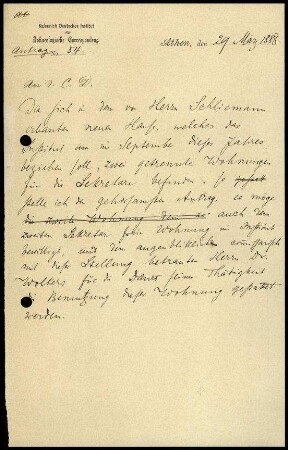 Kaiserlich Deutsches Institut
für
Archaeologische Correspondenz.
Athen, den 29 März 1888
Antrag 54
An d. C. D.
Da sich in dem von Herrn Schliemann
erbauten neuen Hause, welches das
Institut im September dieses Jahres
beziehen soll, zwei getrennte Wohnungen
für die Sekretare befinden, so
stelle ich den gehorsamsten Antrag, es möge
die zweite Wohnung auch dem
zweiten Sekretar freie Wohnung im Institut
bewilligt, und dem augenblicklich
mit dieser Stellung betrauten Herrn Dr.
Wolters für die Dauer seiner Thätigkeit
die Benutzung dieser Wohnung gestattet
werden.